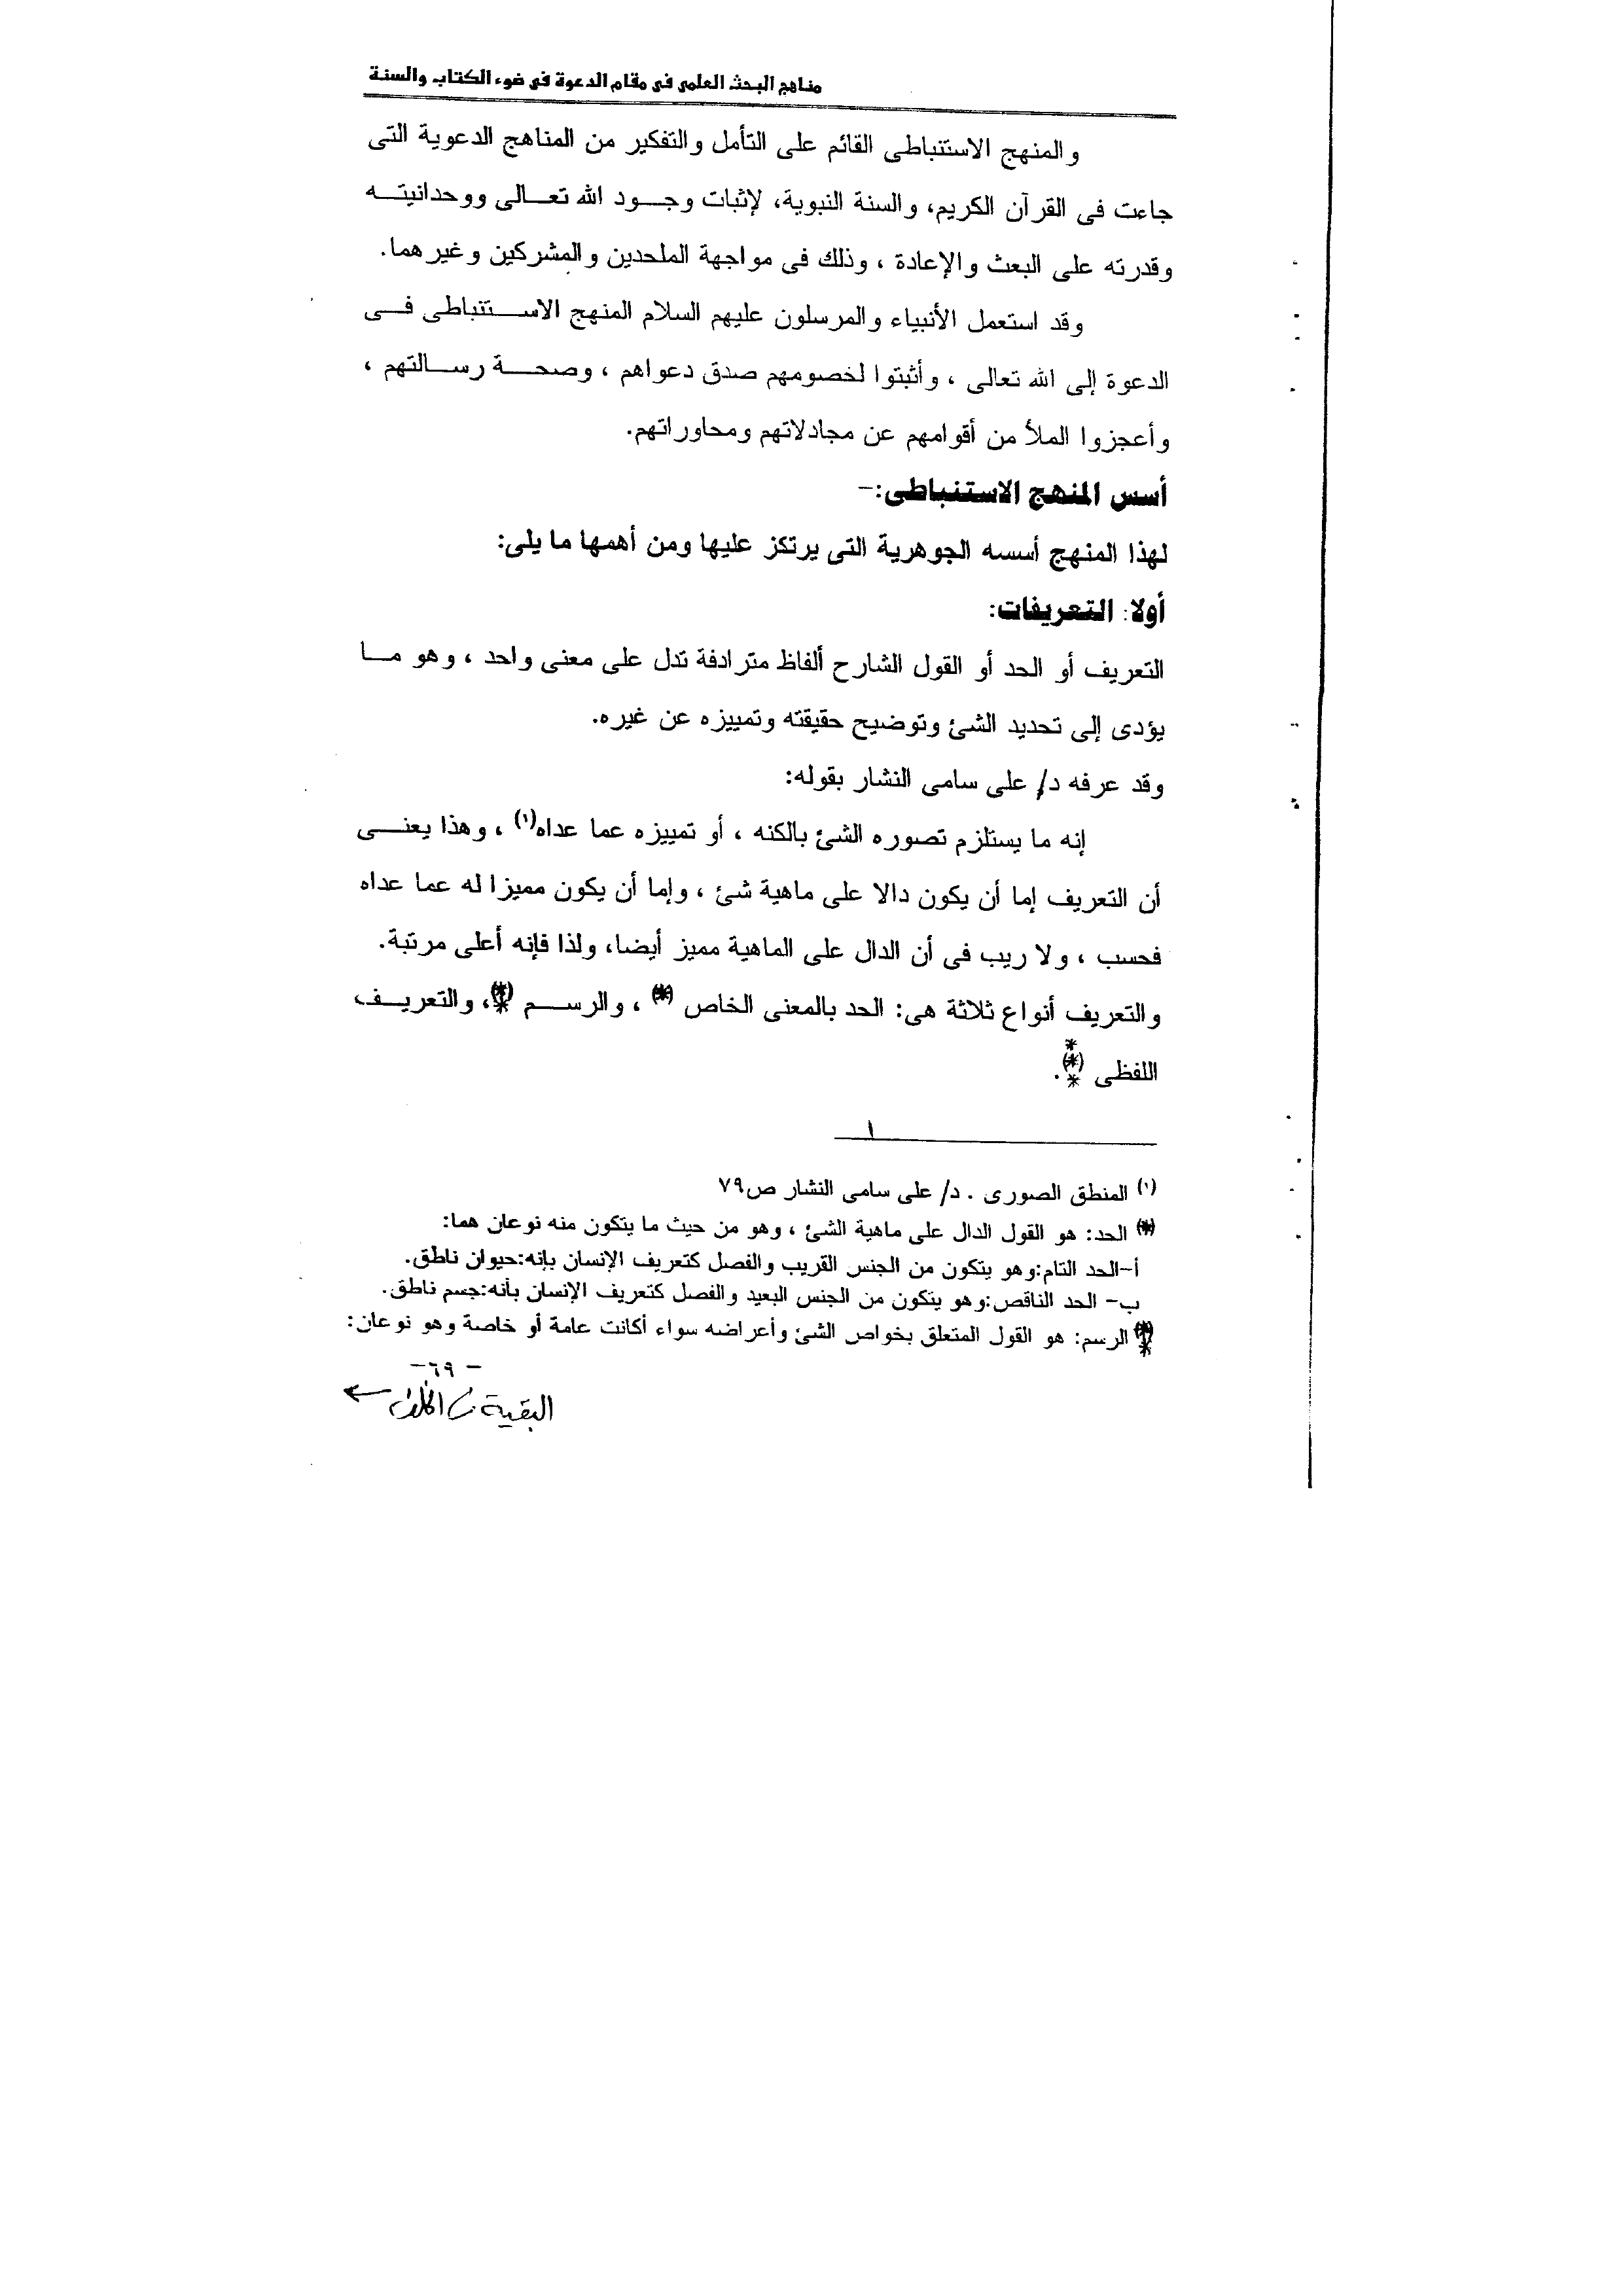 مناهج البحث العلمى فى مقام الدعوة فى ضوء الكتاب والسنة
والمنهج الاستنباطى القائم على التأمل والتفكير من المناهج الدعوية التى
جاءت فى القرآن الكريم، والسنة النبوية، لإثبات وجود الله تعالى ووحدانيته
وقدرته على البعث والإعادة ، وذلك فى مواجهة الملحدين والمشركين وغيرهما.
وقد استعمل الأنبياء والمرسلون عليهم السلام المنهج الاستنباطى فى
الدعوة إلى الله تعالى ، وأثبتوا لخصومهم صدق دعواهم ، وصحة رسالتهم ،
وأعجزوا الملأ من أقوامهم عن مجادلاتهم ومحاوراتهم.
أسس المنهج الاستنباطى:-
لهذا المنهج أسسه الجوهرية التى يرتكز عليها ومن أهمها ما يلى:
أولا: التعريفات:
التعريف أو الحد أو القول الشارح ألفاظ مترادفة تدل على معنى واحد ، وهو ما
يؤدى إلى تحديد الشئ وتوضيح حقيقته وتمييزه عن غيره.
وقد عرفه د/ على سامى النشار بقوله:
إنه ما يستلزم تصوره الشئ بالكنه ، أو تمييزه عما عداه(١) ، وهذا يعنى
أن التعريف إما أن يكون دالا على ماهية شئ ، وإما أن يكون مميزا له عما عداه
فحسب ، ولا ريب فى أن الدال على الماهية مميز أيضا، ولذا فإنه أعلى مرتبة.
والتعريف أنواع ثلاثة هى: الحد بالمعنى الخاص (*) ، والرسم (*)*، والتعريف
اللفظى *(*)* .
١
(١) المنطق الصورى . د/ على سامى النشار ص٧٩
(*) الحد: هو القول الدال على ماهية الشئ ، وهو من حيث ما يتكون منه نوعان هما:
أ-الحد التام:وهو يتكون من الجنس القريب والفصل كتعريف الإنسان بإنه:حيوان ناطق.
ب- الحد الناقص:وهو يتكون من الجنس البعيد والفصل كتعريف الإنسان بأنه:جسم ناطق.
(*)* الرسم: هو القول المتعلق بخواص الشئ وأعراضه سواء أكانت عامة أو خاصة وهو نوعان:
- ٦٩-
البقية ←